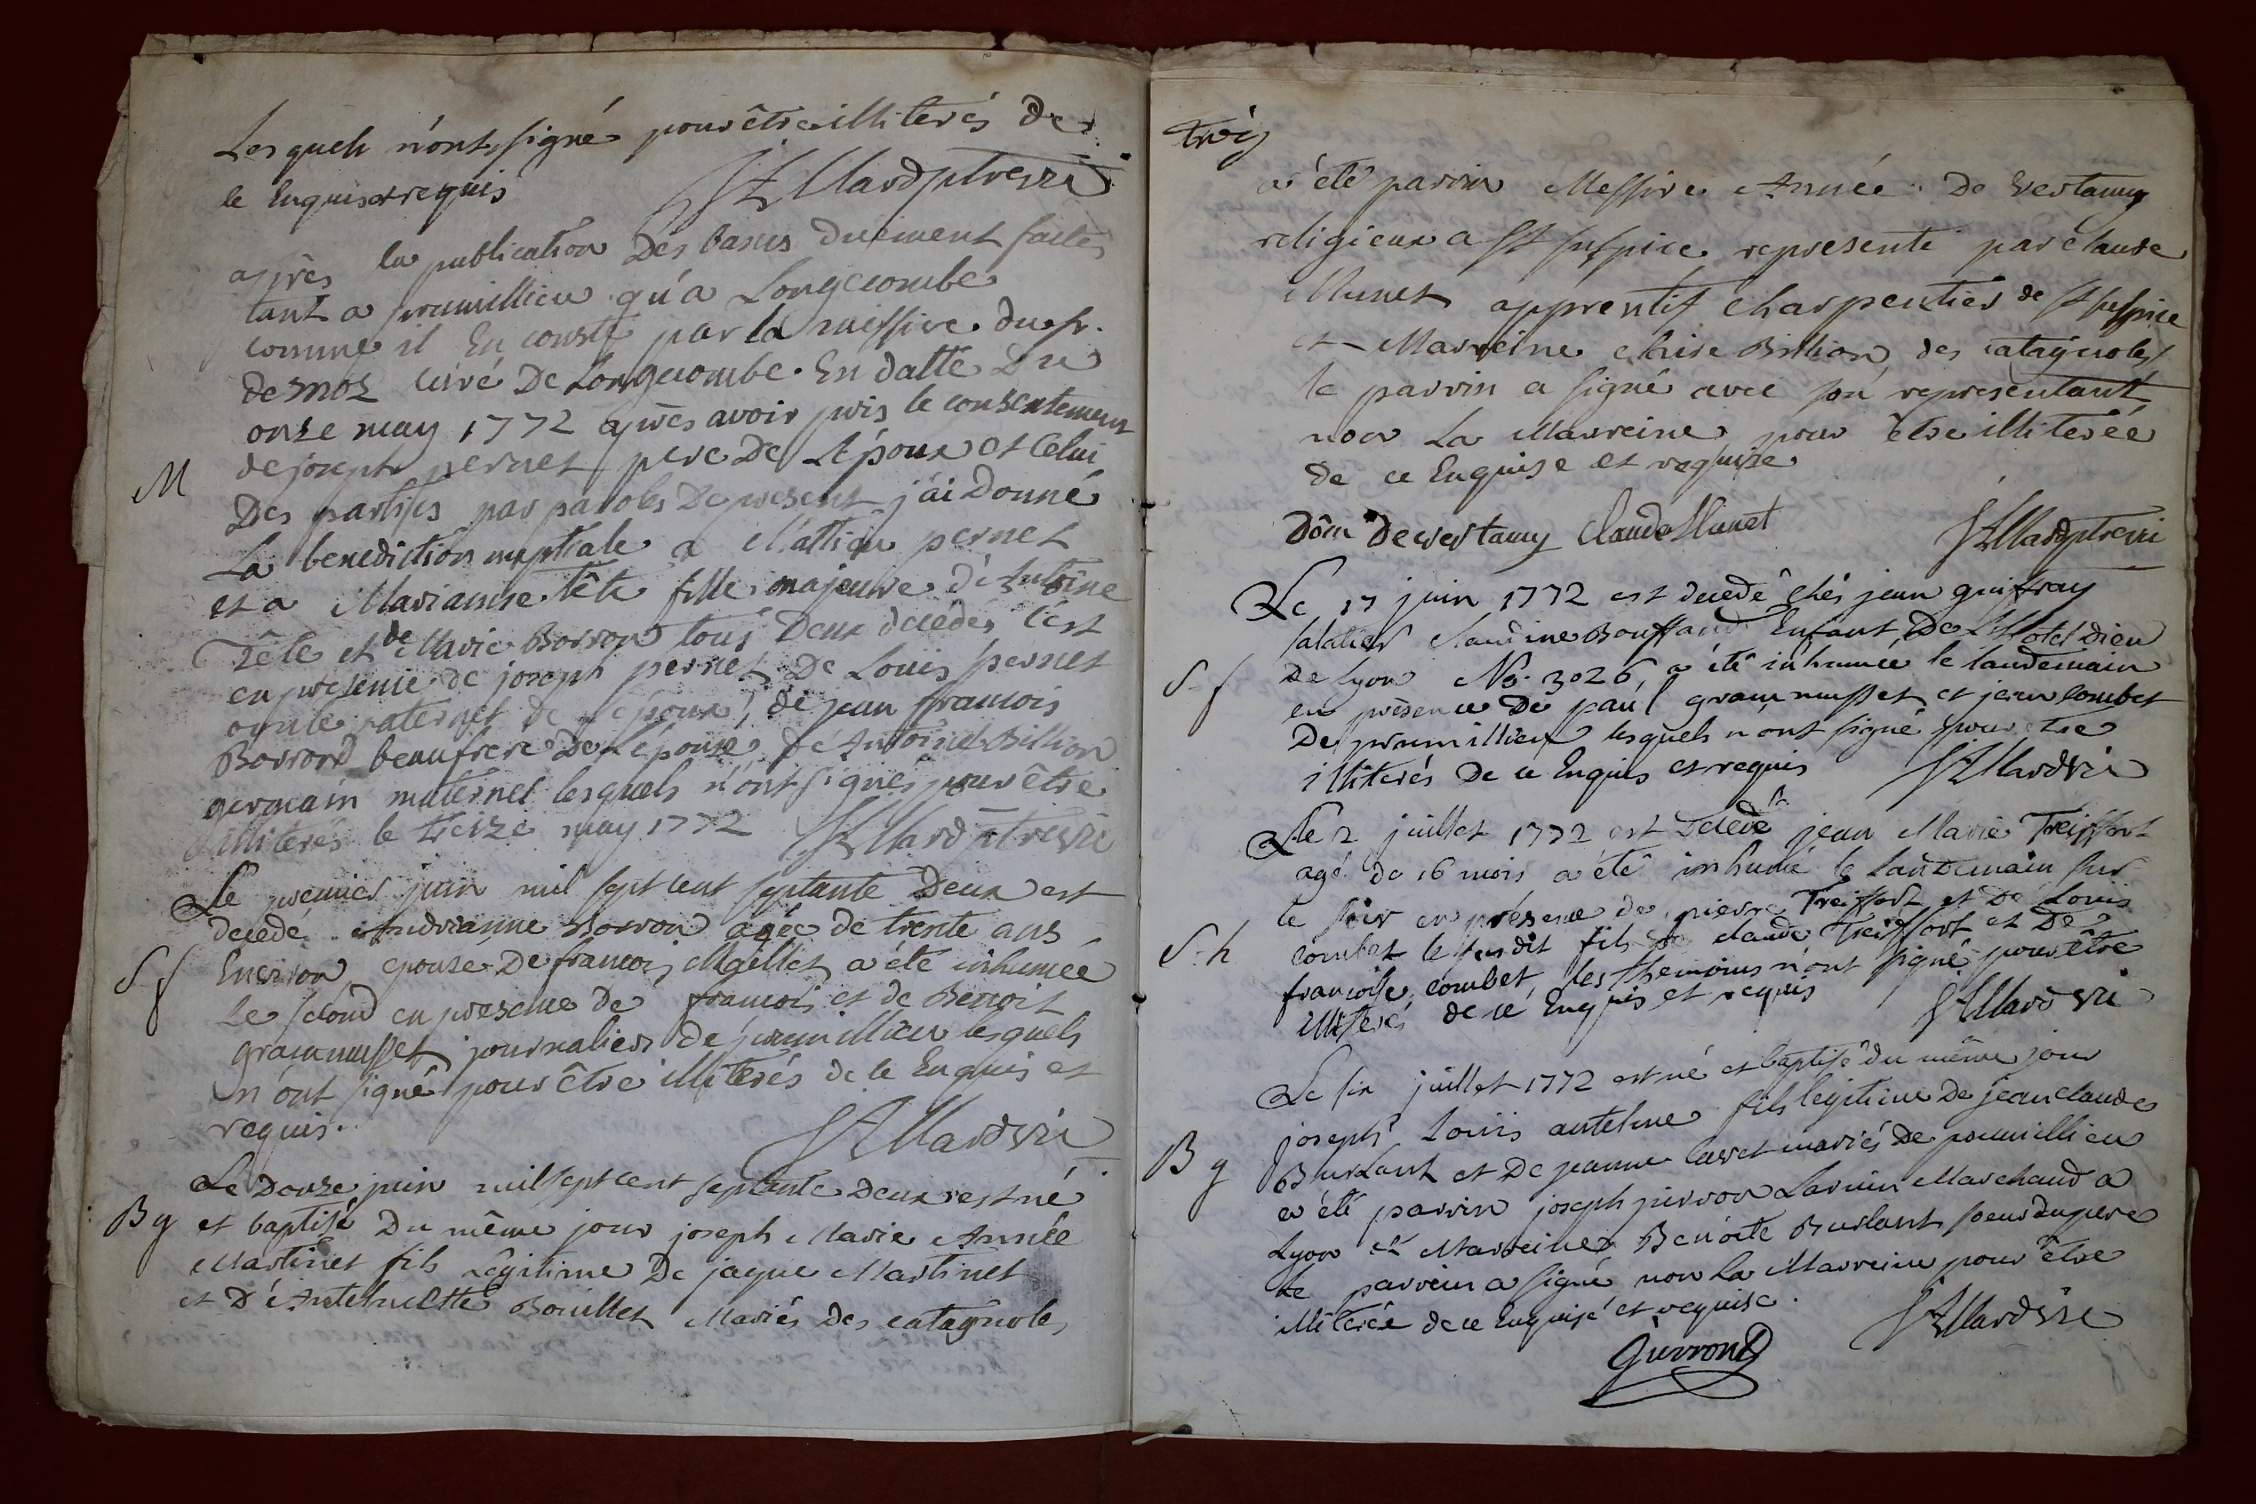 Lesquels n'ont signé pour être illiterés de
ce Enquis et requis
après la publication des bans duement faites
tant a prumillieu qu'a Longecombe
comme il En conste par la missive du sr.
curé De Longecombe. En datte Du
onze may 1772 après avoir pris le consentement
de joseph pernet pere De L'époux et Celui
M
Des parties par paroles De present j'ai Donné
La benediction nuptiale a Mattieu pernet
et a Marianne Tête fille majeure d'Antoine
Tête et de Marie Borron tous Deux decedés c'est
en presence de joseph pernet De Louis pernet
oncle paternel de L'époux, de jean francois
Borrond beaufrere De L'épouse, de Antoine Billion
germain maternel lesquels n'ont signés pour être
illiterés le treize may 1772
Le premier juin mil sept cent septante Deux est
decedé Andrianne Borron agée de trente ans
S f
Environ epouse De francois Maillet a été inhumée
Le second en presence de francois et de Benoit
grammusset journaliers de prumillieu lesquels
n'ont signé pour être illiterés de ce Enquis et
requis.
Le Douze juin mil sept cent septante deux est né
B g
et baptisé Du même jour joseph Marie Année
Martinet fils Légitime De jaque Martinet
et D'Antelmette Bouillet Mariés Des catagnoles
trois
a été parrin Messire Année De Vertamy
religieux a St Sulpice representé par claude
Munet apprentif charpentier de St Sulpice
et Marreine claire Billion des catagnoles
le parrin a signé avec son representant
non La Marreine pour être illiterée
de ce Enquise et requise
Dôm De vertamy Claude Munet
Le 17 juin 1772 est decedé chés jean guiffray
Claudine Bouffaud Enfant De L'hotel dieu
S-f
De Lyon No. 3026, a été inhumée le landemain
en présence De paul grammusset et jean combet
De prumillieu lesquels n'ont signé pour etre
illiterés De ce Enquis et requis
Le 2 juillet 1772 est Decedé jean Marie Treiffort
agé de 16 mois a été inhumé le Landemain sur
le soir en présence de pierre Treiffort et De Louis
S-h
combet le susdit fils de claude Treiffort et De
francoise combet, les themoins n'ont signé pour être
illiterés de ce Enquis et requis
Le six juillet 1772 est né et baptisé du même jour
joseph Louis antelme fils legitime De jean claude
B g
Burlant et De jeanne mariés De prumillieu
a été parrin joseph Marchand a
Lyon et Marreine Benoite Burlant soeur du pere
Le parrein a signé non La Marreine pour être
illiterée de ce Enquise et requise.